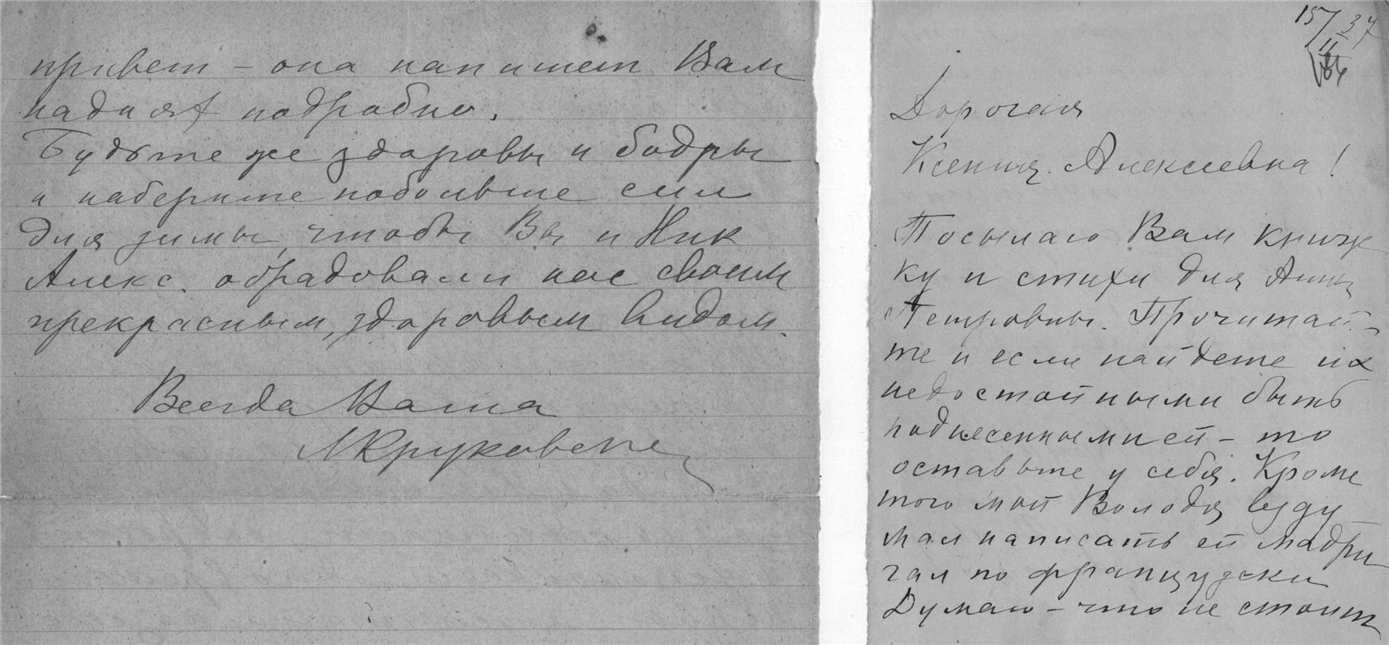 привет – она напишет Вам
на днях подробно.
Будьте же здоровы и бодры
и наберите побольше сил
для зимы, чтобы Вы и Ник
Алекс. обрадовали нас своим
прекрасным, здоровым видом.
Всегда Ваша
МКруковск
15/II 37
Дорогая
Ксения Алексеевна!
Посылаю Вам книж
ку и стихи для Анны
Петровны. Прочитай-
те и если найдете их
недостойными быть
поднесенными ей – то
оставьте у себя. Кроме
того мой Володя взду
мал написать ей мадри
гал по французски
Думаю – что не стоит